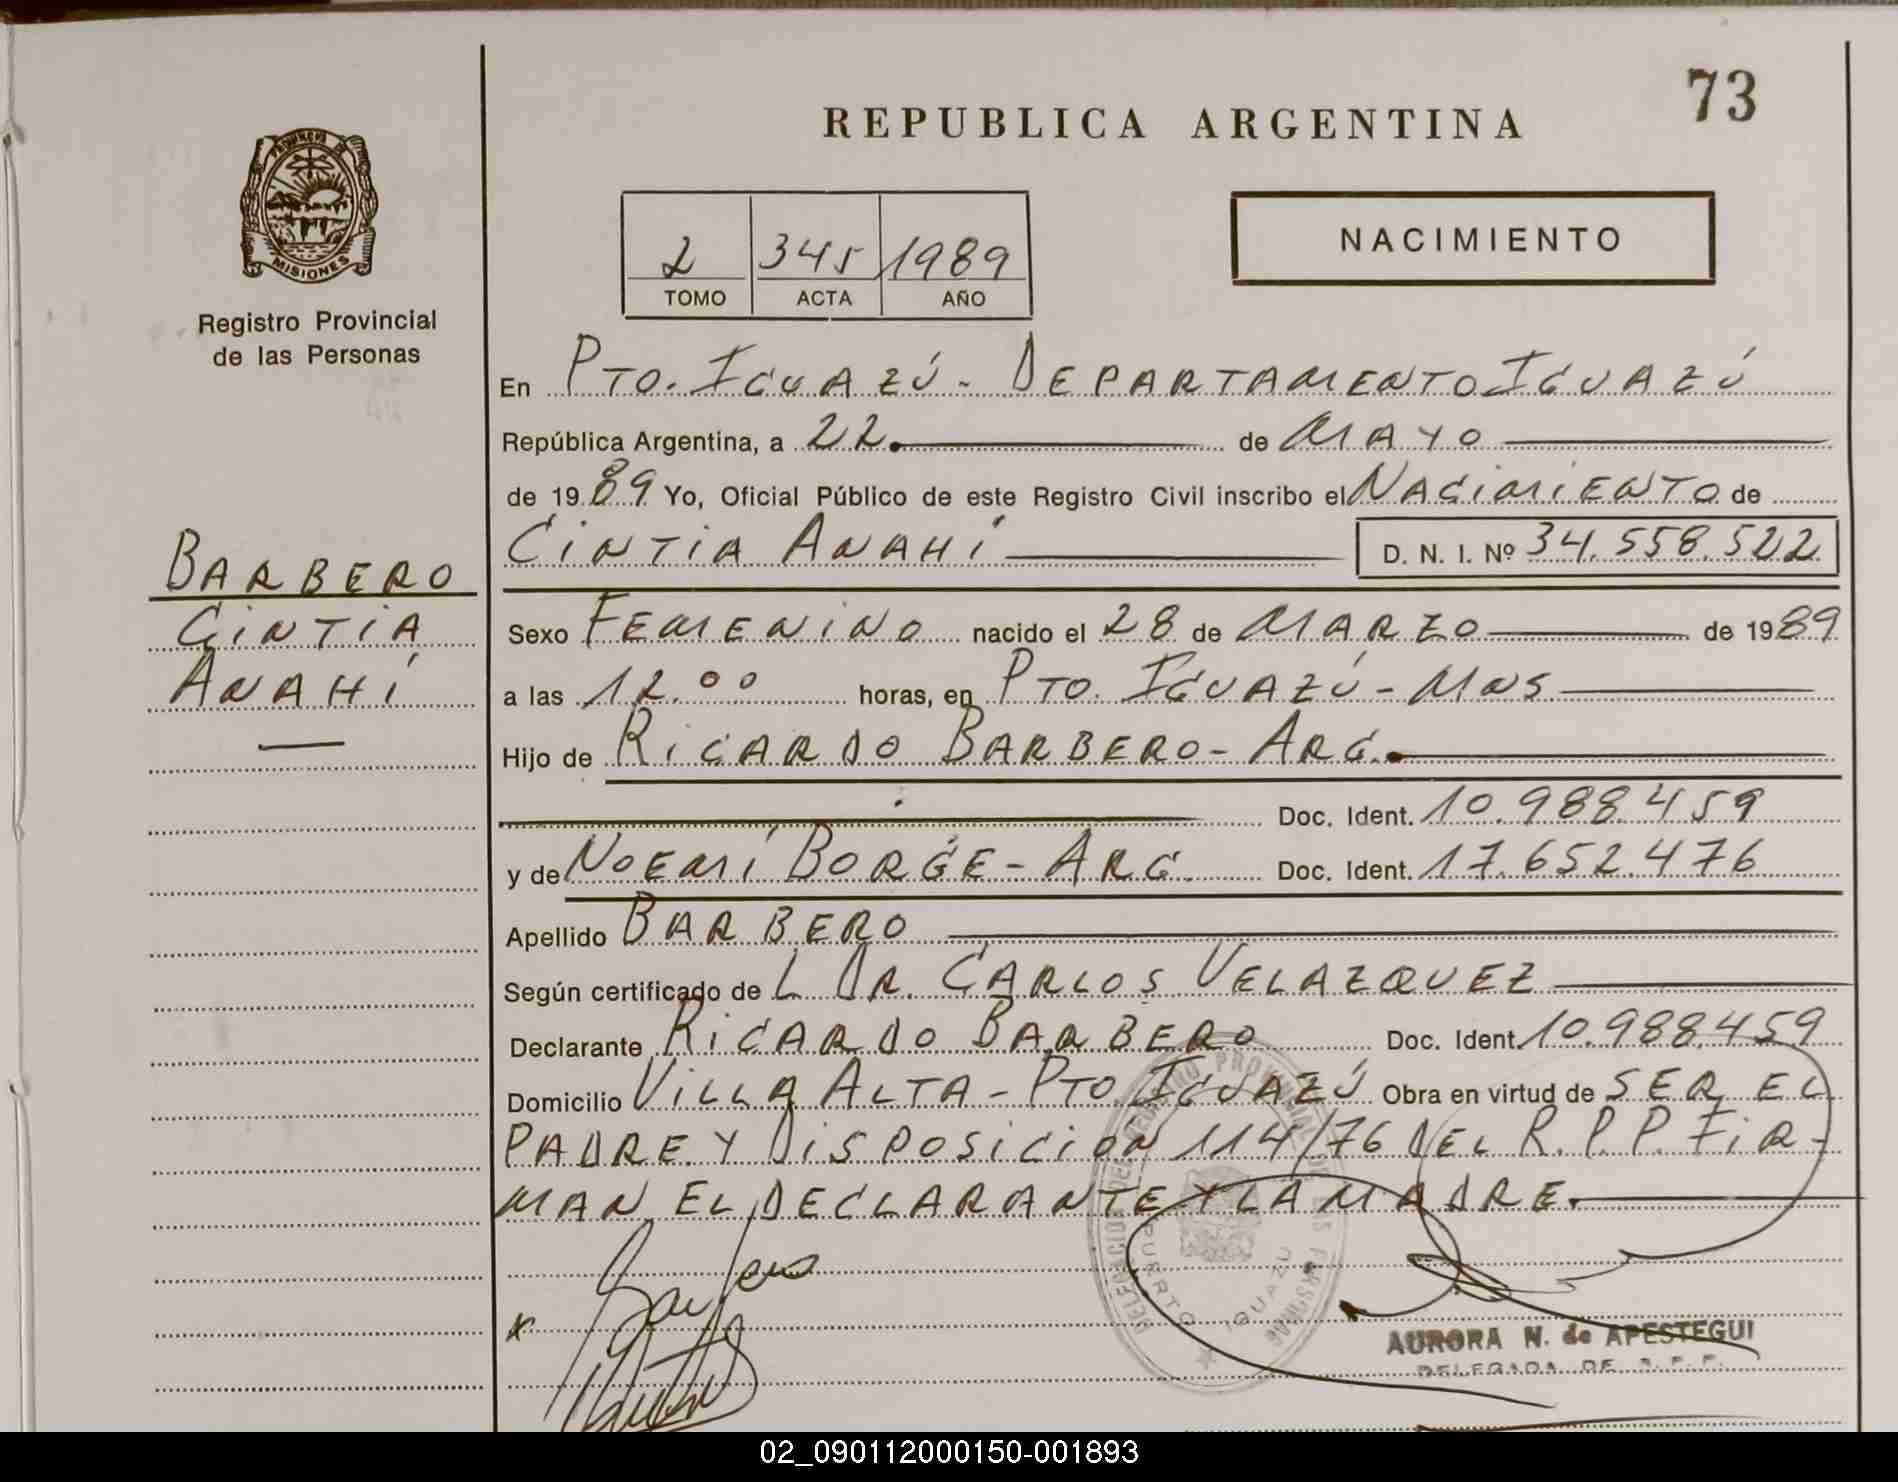 73
REPUBLICA ARGENTINA
PROVINCIA DE
MISIONES
Registro Provincial
de las Personas
2 345 1989
TOMO ACTA AÑO
NACIMIENTO
En PTO. IGUAZÚ - DEPARTAMENTO IGUAZÚ
República Argentina, a 22 de MAYO
de 1989 Yo, Oficial Público de este Registro Civil inscribo el NACIMIENTO de
CINTIA ANAHÍ D. N. I. Nº 34.558.522
BARBERO
CINTIA
ANAHÍ
Sexo FEMENINO nacido el 28 de MARZO de 1989
a las 12.00 horas, en PTO. IGUAZÚ - MNS
Hijo de RICARDO BARBERO - ARG.
Doc. Ident. 10.988.459
y de NOEMÍ BORGE - ARG. Doc. Ident. 17.652.476
Apellido BARBERO
Según certificado de L DR. CARLOS VELAZQUEZ
Declarante RICARDO BARBERO Doc. Ident. 10.988.459
Domicilio VILLA ALTA - PTO. IGUAZÚ Obra en virtud de SER EL
PADRE Y DISPOSICION 114/76 DEL R.P.P. FIR-
MAN EL DECLARANTE Y LA MADRE.
DELEGACION DEL REGISTRO PROVINCIAL DE LAS PERSONAS
PUERTO IGUAZU
x
AURORA N. de APESTEGUI
DELEGADA DE R.P.P.
02_090112000150-001893